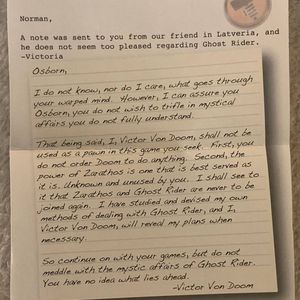 Norman,
A note was sent to you from our friend in Latveria, and
he does not seem too pleased regarding Ghost Rider.
-Victoria
Osborn,
I do not know, nor do I care, what goes through
your warped mind. However, I can assure you
Osborn, you do not wish to trifle in mystical
affairs you do not fully understand.
That being said, I, Victor Von Doom, shall not be
used as a pawn in this game you seek. First, you
do not order Doom to do anything. Second, the
power of Zarathos is one that is best served as
it is. Unknown and unused by you. I shall see to
it that Zarathos and Ghost Rider are never to be
joined again. I have studied and devised my own
methods of dealing with Ghost Rider, and I,
Victor Von Doom, will reveal my plans when
necessary.
So continue on with your games, but do not
meddle with the mystic affairs of Ghost Rider.
You have no idea what lies ahead.
-Victor Von Doom